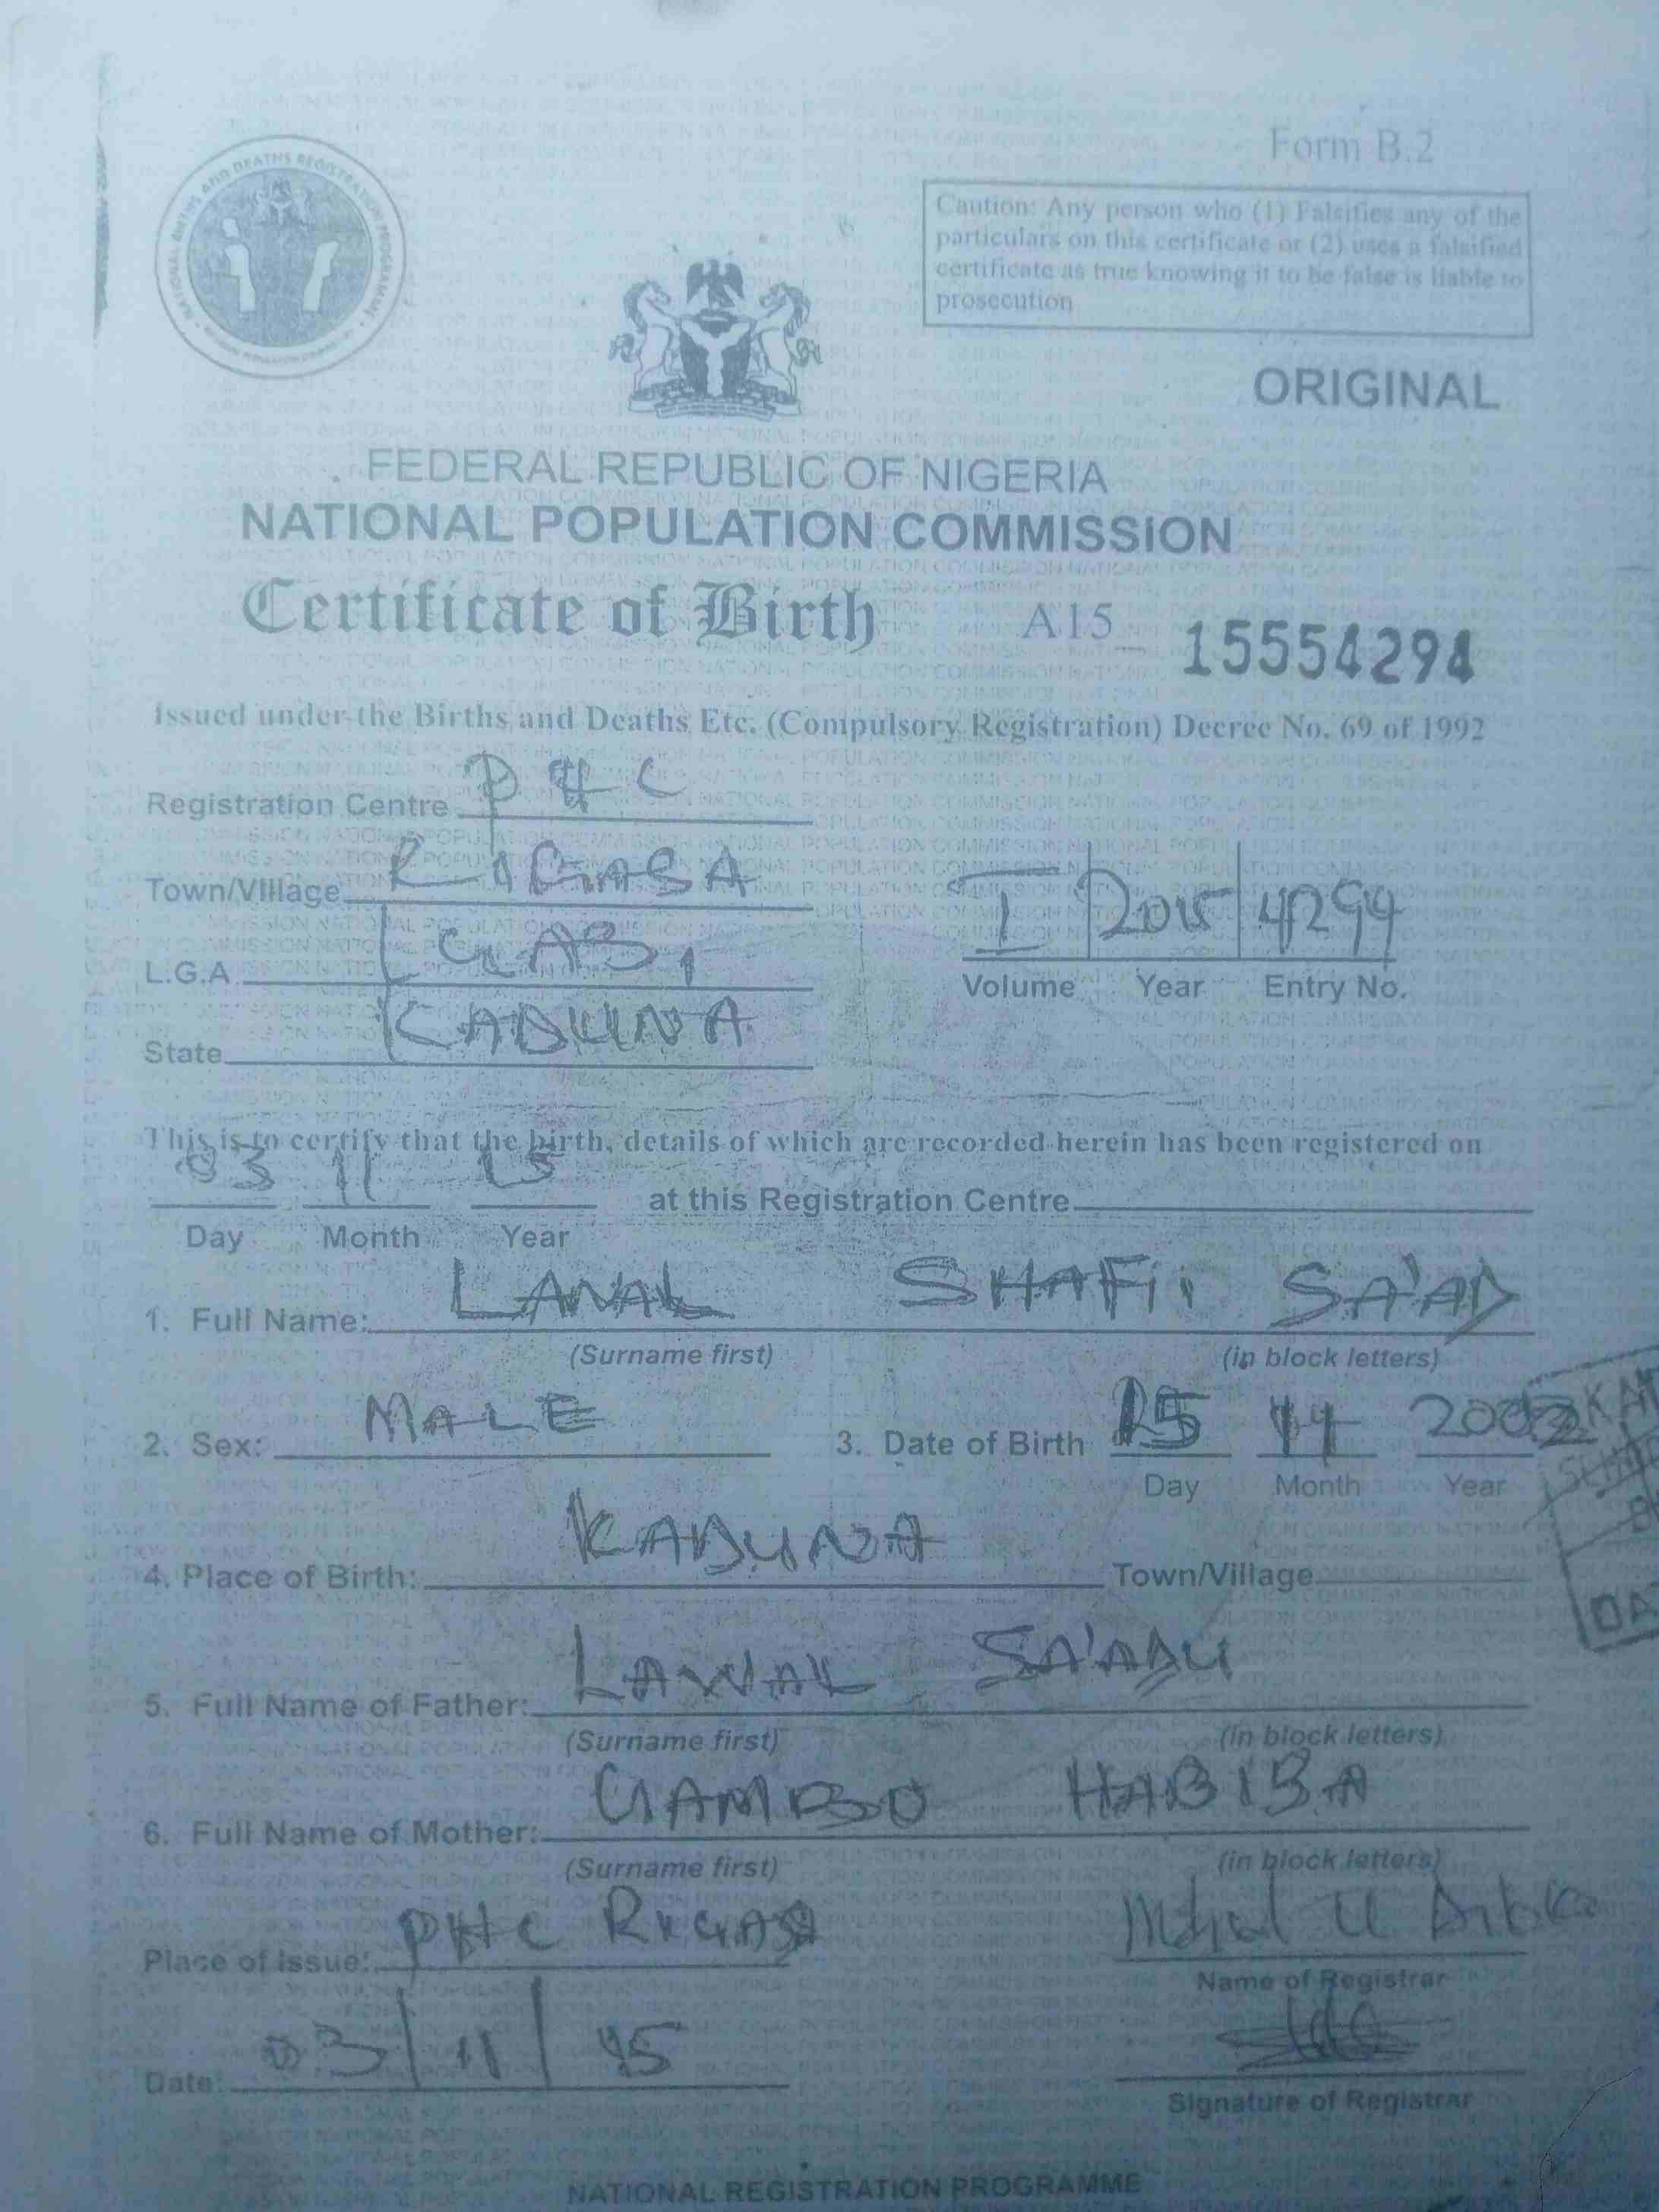 Form B.2
Caution: Any person who (1) Falsifies any of the
particulars on this certificate or (2) uses a falsified
certificate as true knowing it to be false is liable to
prosecution
ORIGINAL
FEDERAL REPUBLIC OF NIGERIA
NATIONAL POPULATION COMMISSION
Certificate of Birth A15 15554294
Issued under the Births and Deaths Etc. (Compulsory Registration) Decree No. 69 of 1992
Registration Centre PHC
Town/Village RIGASA
L.G.A IGABI
State KADUNA
I 2015 4294
Volume Year Entry No.
This is to certify that the birth, details of which are recorded herein has been registered on
03 11 15 at this Registration Centre
Day Month Year
1. Full Name: LAWAL SHAFII SA'AD
(Surname first) (in block letters)
2. Sex: MALE 3. Date of Birth
Day Month Year
4. Place of Birth: KADUNA Town/Village
5. Full Name of Father: LAWAL SA'ADU
(Surname first) (in block letters)
6. Full Name of Mother: GAMBO HABIBA
(Surname first) (in block letters)
Place of Issue: PHC RIGASA
Name of Registrar
Date: 03/11/15
Signature of Registrar
NATIONAL REGISTRATION PROGRAMME